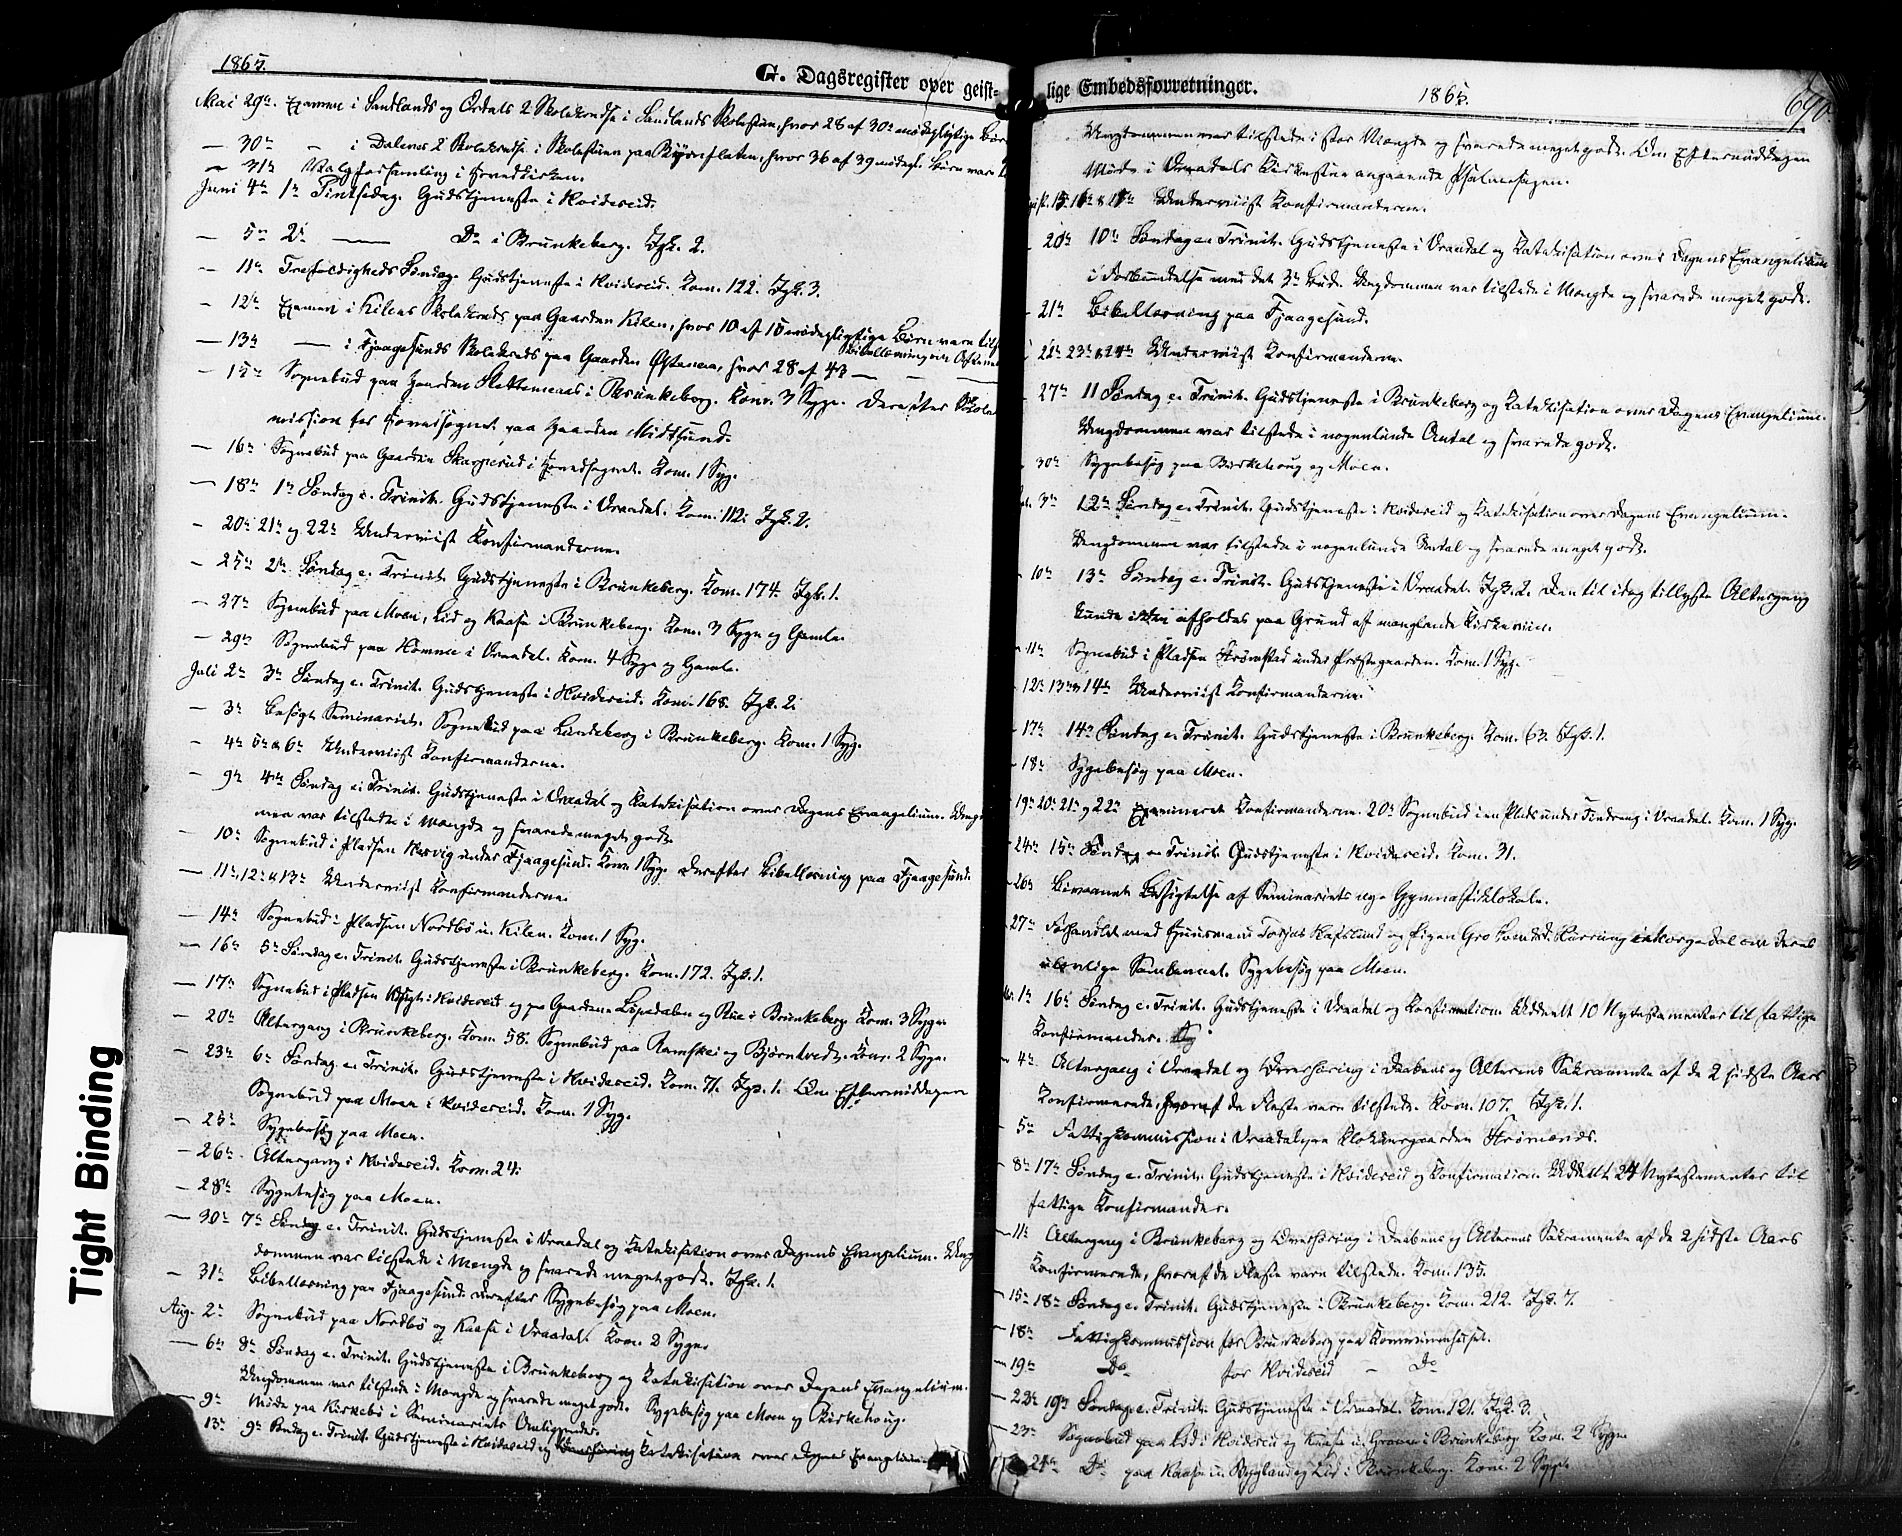 1865.
G. Dagsregister over geist-
Mai 29de. Examen i Sandlands og Ordals 2 Skolekredse i Sandlands Skolestue, hvor 28 af 30 mødepligtige Børn
— 30te — i Dalenes 2 Skolekredse i Skolestuen paa Bjønfleten, hvor 36 af 39 mødepl. Børn var
— 31te Valgforsamling i Hovedkirken.
Juni 4de 1ste Pintsedag. Gudstjeneste i Hvideseid.
— 5te 2den — Do i Brunkeberg. Igk. 2.
— 11te Trefoldigheds Søndag. Gudstjeneste i Hvideseid. Kom. 122. Igk. 3.
— 12te Examen i Kilens Skolekreds paa Gaarden Kilen, hvor 10 af 15 mødepligtige Børn vare tilst
— 13de — i Fjaagesunds Skolekreds paa Gaarden Østenaa, hvor 28 af 43 — — Bibellæsning om Aftenen
— 15de Sognebud paa Gaarden Slettemeaas i Brunkeberg. Kom. 3 Syge. Derefter Skolekom
mission for Hovedsognet paa Gaarden Midtsund.
— 16de Sognebud paa Gaarden Skarperud i Hovedsognet. Kom. 1 Syg.
— 18de 1ste Søndag e. Trinit. Gudstjeneste i Vraadal. Kom. 112. Igk. 2.
— 20de 21de og 22de Underviist Konfirmanderne.
— 25de 2den Søndag e. Trinit. Gudstjeneste i Brunkeberg. Kom. 174. Igk. 1.
— 27de Sognebud paa Moen, Lid og Kaasa i Brunkeberg. Kom. 3 Syge og Gamle.
— 29de Sognebud paa Homme i Vraadal. Kom. 4 Syge og Gamle.
Juli 2den 3die Søndag e. Trinit. Gudstjeneste i Hvideseid. Kom. 168. Igk. 2.
— 3die Besøgt Seminariet. Sognebud paa Lundeberg i Brunkeberg. Kom. 1 Syg.
— 4de 5te & 6te Underviist Konfirmanderne.
— 9de 4de Søndag e. Trinit. Gudstjeneste i Vraadal og Katekisation over Dagens Evangelium. Ungdom
men var tilstede i Mængde og svarede meget godt.
— 10de Sognebud i Pladsen Næsvig under Fjaagesund. Kom. 1 Syg. Derefter Bibellæsning paa Fjaagesund.
— 11te, 12te & 13de Underviist Konfirmanderne.
— 14de Sognebud i Pladsen Nordbø u. Kilen. Kom. 1 Syg.
— 16de 5te Søndag e. Trinit. Gudstjeneste i Brunkeberg. Kom. 172. Igk. 1.
— 17de Sognebud i Pladsen i Hvideseid og paa Gaardene Lysedalen og Rue i Brunkeberg. Kom. 3 Syge.
— 20de Altergang i Brunkeberg. Kom. 58. Sognebud paa Ramskei og Bjørntvedt. Kom. 2 Syge.
— 23de 6te Søndag e. Trinit. Gudstjeneste i Hvideseid. Kom. 71. Igk. 1. Om Eftermiddagen
Sognebud paa Moen i Hvideseid. Kom. 1 Syg.
— 25de Sygebesøg paa Moen.
— 26de Altergang i Hvideseid. Kom. 24.
— 28de Sygebesøg paa Moen.
— 30te 7de Søndag e. Trinit. Gudstjeneste i Vraadal og Katekisation over Dagens Evangelium. Ung
dommen var tilstede i Mængde og svarede meget godt. Igk. 1.
— 31te Bibellæsning paa Fjaagesund. Derefter Sygebesøg paa Moen.
Aug. 2den Sognebud paa Nordbø og Kaasa i Vraadal. Kom. 2 Syge.
— 6te 8de Søndag e. Trinit. Gudstjeneste i Brunkeberg og Katekisation over Dagens Evangelium.
Ungdommen var tilstede i Mængde og svarede meget godt. Sygebesøg paa Moen og Birkehoug.
— 9de Møde paa Kirkebø i Seminariets Anliggender.
— 13de 9de Søndag e. Trinit. Gudstjeneste i Hvideseid og Katekisation over Dagens Evangelium
lige Embedsforretninger.
1865.
690
Ungdommen var tilstede i stor Mængde og svarede meget godt. Om Eftermiddagen
Møde i Vraadals Kirkestue angaaende Psalmesagen.
15. 16de & 17de Underviist Konfirmanderne.
— 20de 10de Søndag e. Trinit. Gudstjeneste i Vraadal og Katekisation over Dagens Evangelium
i Forbindelse med det 3de Bud. Ungdommen var tilstede i Mængde og svarede meget godt.
— 21de Bibellæsning paa Fjaagesund.
22de 23de & 24de Underviist Konfirmanderne.
— 27de 11 Søndag e. Trinit. Gudstjeneste i Brunkeberg og Katekisation over Dagens Evangelium.
Ungdommen var tilstede i nogenlunde Antal og svarede godt.
30te Sygebesøg paa Birkehoug og Moen.
3die 12te Søndag e. Trinit. Gudstjeneste i Hvideseid og Katekisation over Dagens Evangelium.
Ungdommen var tilstede i nogenlunde Antal og svarede meget godt.
— 10de 13de Søndag e. Trinit. Gudstjeneste i Vraadal. Igk. 2. Den til idag tillyste Altergang
kunde ikke afholdes paa Grund af manglende Kirkeviin.
— 11te Sognebud i Pladsen Strømstad under Præstegaarden. Kom. 1 Syg.
— 12te 13de & 14de Underviist Konfirmanderne.
— 17de 14de Søndag e. Trinit. Gudstjeneste i Brunkeberg. Kom. 63. Igk. 1.
— 18de Sygebesøg paa Moen.
— 19de 20de 21de og 22de Examineret Konfirmanderne. 20de Sognebud i en Plads under Tindreng i Vraadal. Kom. 1 Syg.
— 24de 15de Søndag e. Trinit. Gudstjeneste i Hvideseid. Kom. 31.
— 26de Bivaanet Besigtelse af Seminariets nye Gymnastiklokale.
— 27de Forhandlet med Huusmand Torjus Hafslund og Pigen Gro om deres
ulovlige Samkvem. Sygebesøg paa Moen.
1ste 16de Søndag e. Trinit. Gudstjeneste i Vraadal og Konfirmation. Uddeelt 10 Nytestamenter til fattige
Konfirmander.
— 4de Altergang i Vraadal og Overhøring i Daabens og Alterens Sakramente af de 2 sidste Aars
Konfirmerede, hvoraf de Fleste vare tilstede. Kom. 107. Igk. 1.
— 5te Fattigkommission i Vraadal paa Klokkergaarden Strømnæs.
— 8de 17de Søndag e. Trinit. Gudstjeneste i Hvideseid og Konfirmation. Uddeelt 24 Nytestamenter til
fattige Konfirmander.
— 11te Altergang i Brunkeberg og Overhøring i Daabens og Alterens Sakramente af de 2 sidste Aars
Konfirmerede, hvoraf de Fleste vare tilstede. Kom. 135.
— 15de 18de Søndag e. Trinit. Gudstjeneste i Brunkeberg. Kom. 212. Igk. 7.
— 18de Fattigkommission for Brunkeberg paa Kommunehuset.
— 19de Do for Hvideseid — Do
— 22de 19de Søndag e. Trinit. Gudstjeneste i Vraadal. Kom. 121. Igk. 3.
— 23de Sognebud paa i Hvideseid og Kaasa u. i Brunkeberg. Kom. 2 Syge.
— 24de Do paa Kaasa u. Bygland og Lid i Brunkeberg. Kom. 2 Syge.
Tight Binding